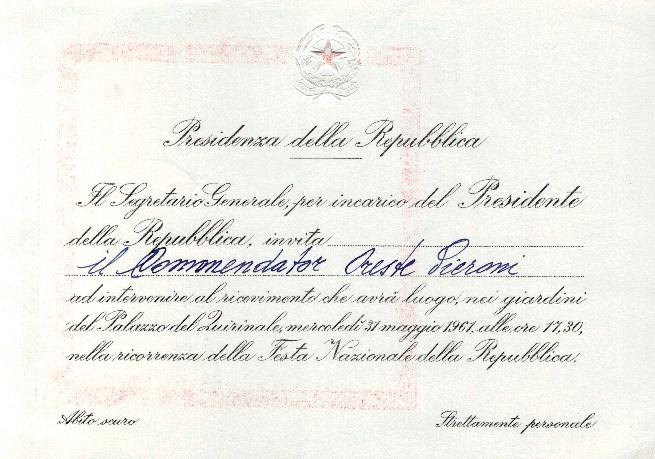 Presidenza della Repubblica
Il Segretario Generale, per incarico del Presidente
della Repubblica, invita
il Commendator Oreste Pieroni
ad intervenire al ricevimento che avrà luogo, nei giardini
del Palazzo del Quirinale, mercoledì 31 maggio 1961, alle ore 17,30,
nella ricorrenza della Festa Nazionale della Repubblica.
Abito scuro
Strettamente personale